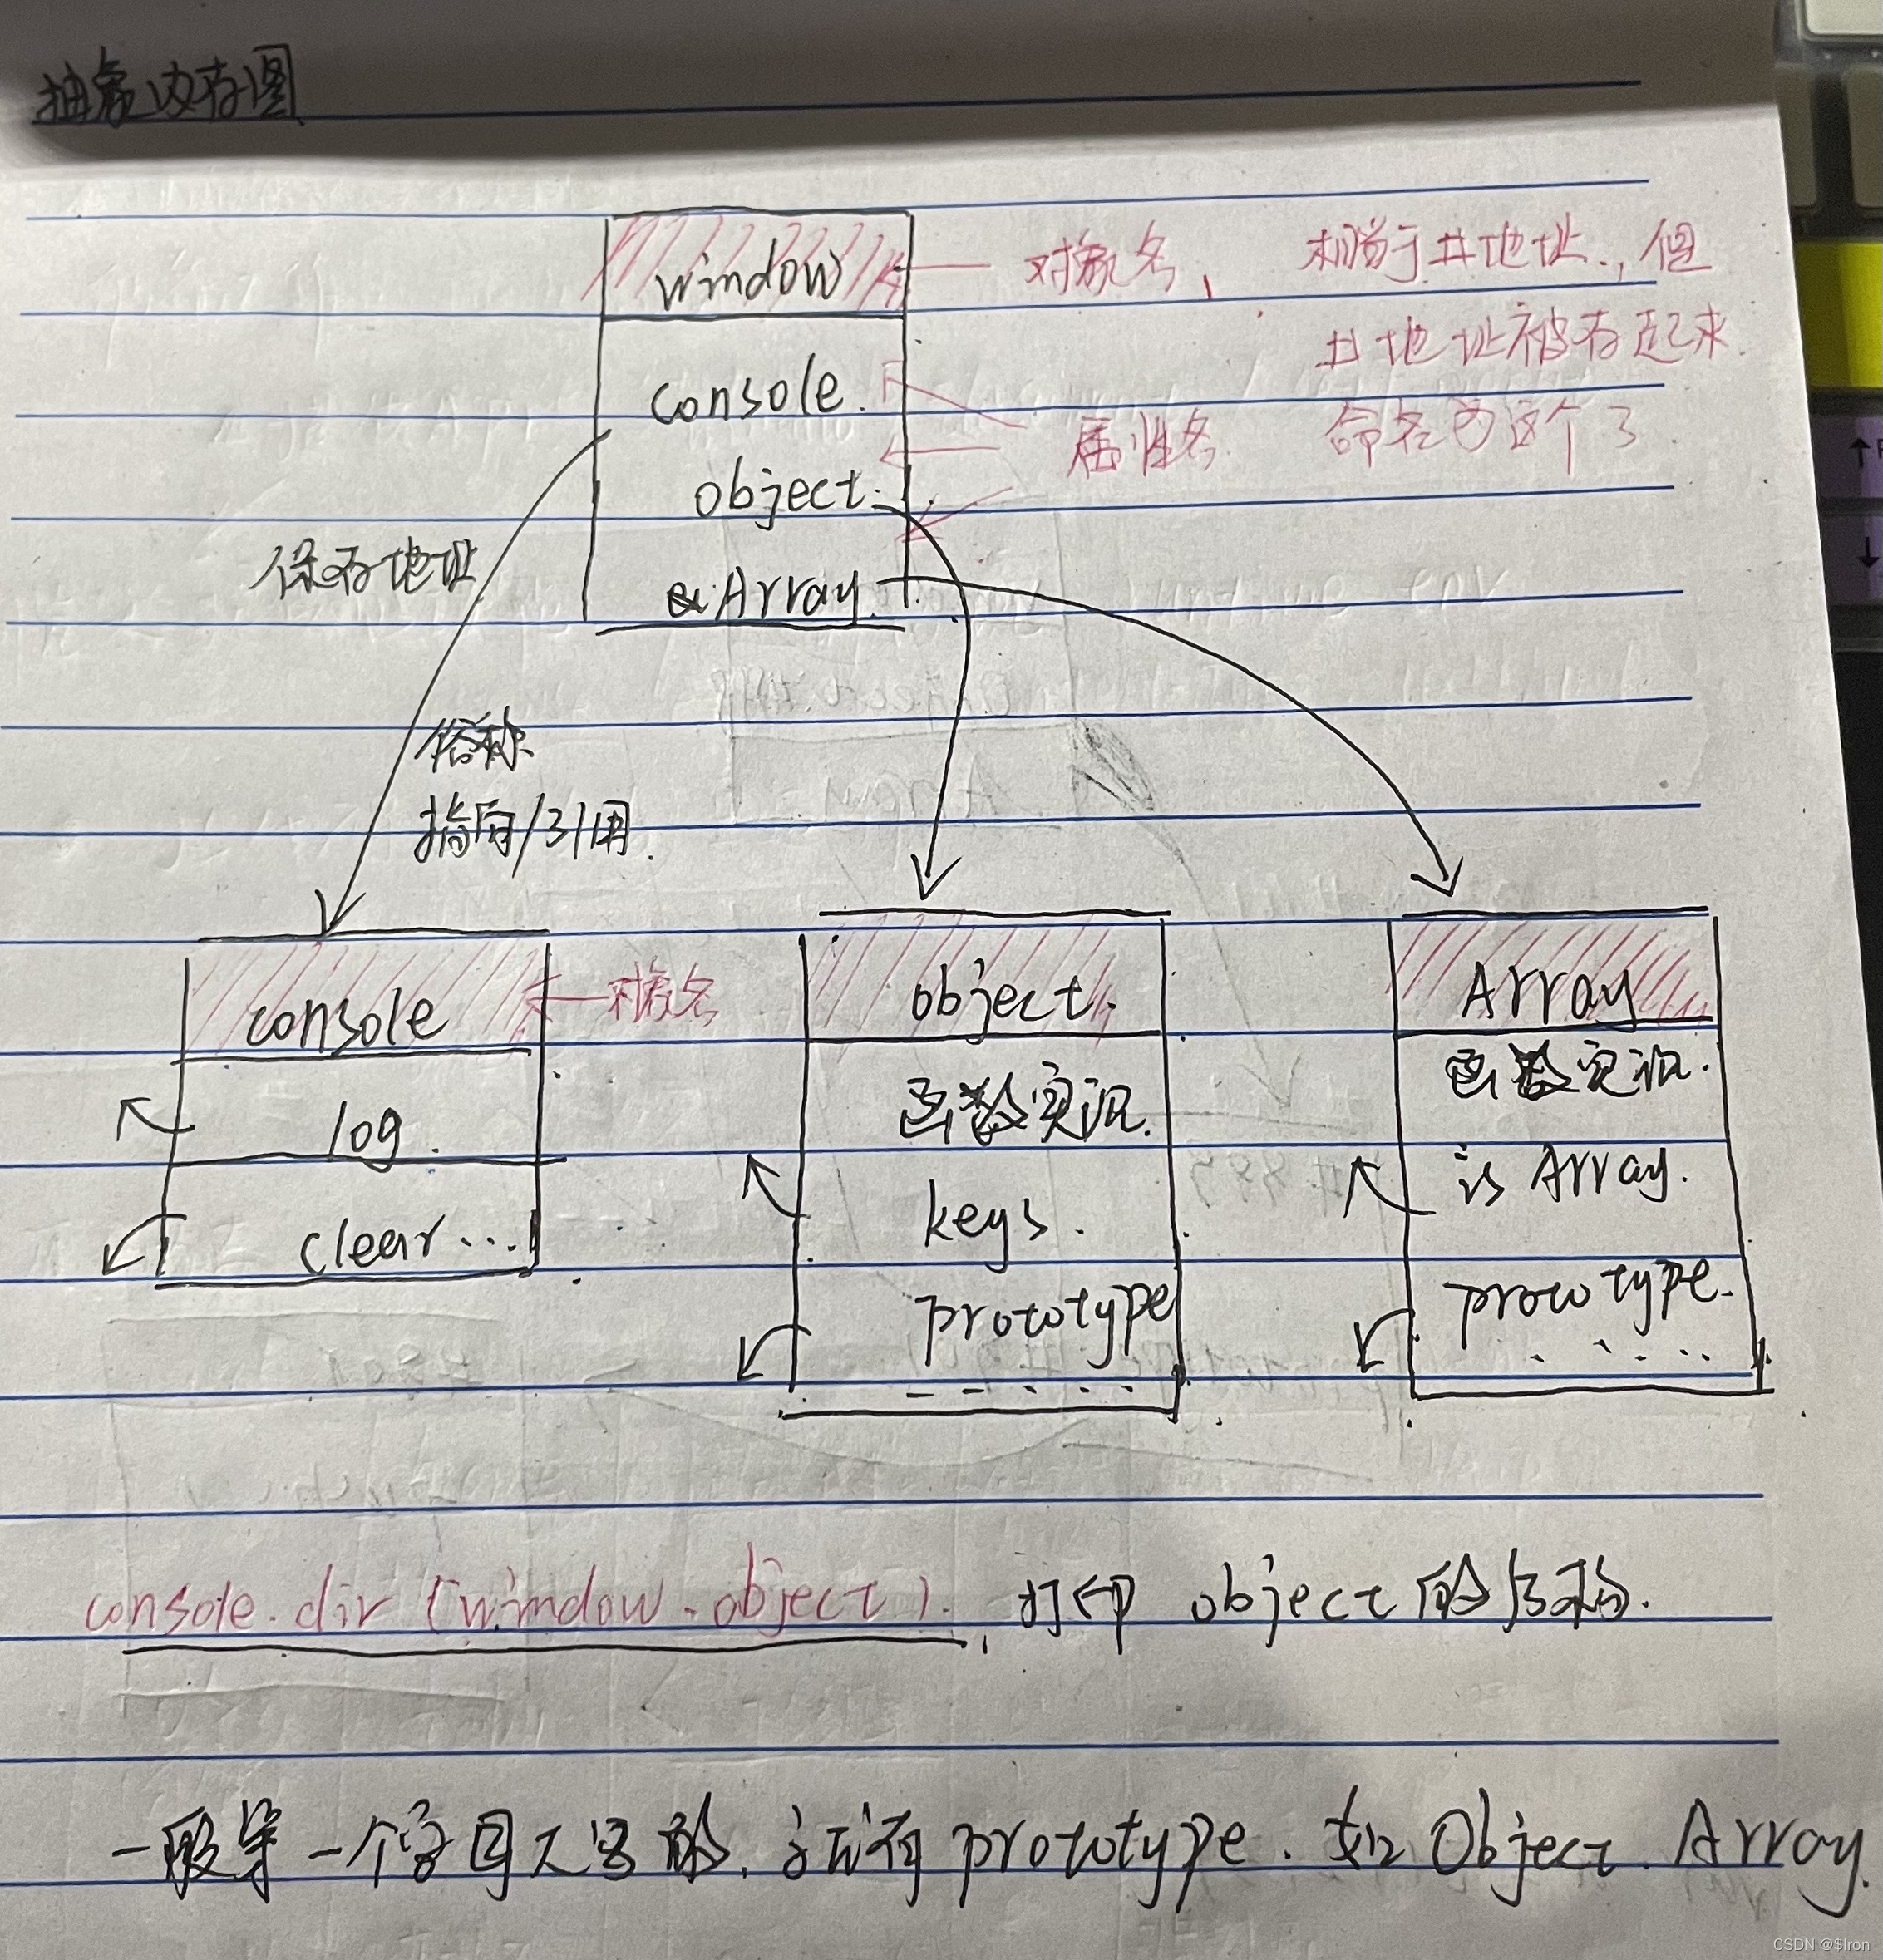 抽象内存图
window
对象名,
相当于#地址,但
#地址被存起来
命名为这个了
console.
属性名
object.
Array.
保存地址
俗称
指向/引用.
console
对象名
object.
Array
log.
函数实现.
函数实现.
clear...
keys.
isArray.
prototype
prototype.
console.dir(window.object). 打印 object 的结构.
一般第一个字母大写的,就有prototype. 如 Object. Array.
CSDN @$Iron